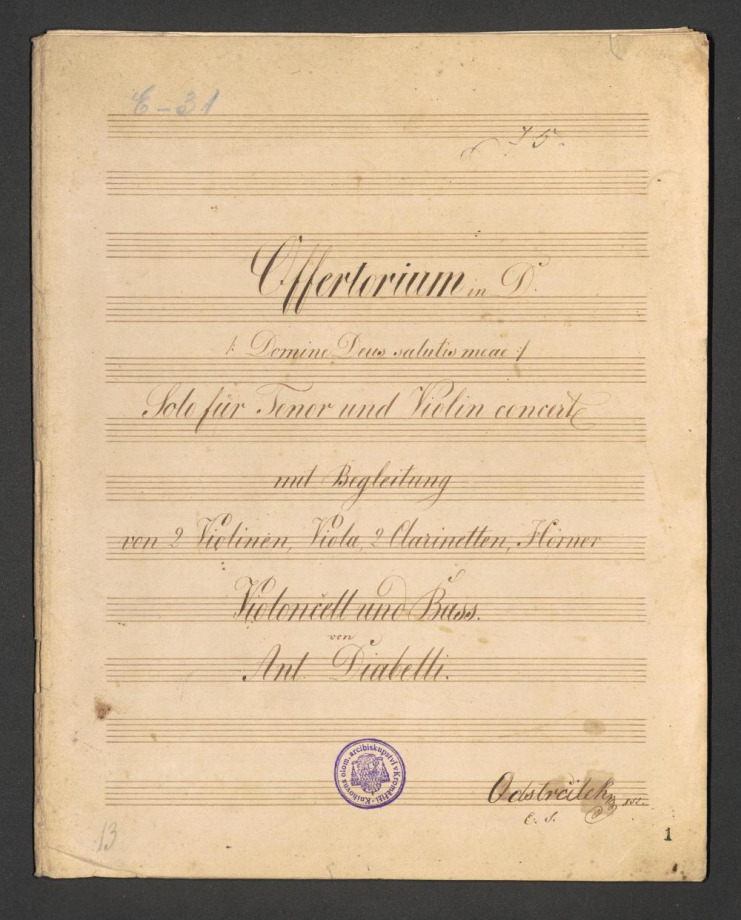 E-31
75
Offertorium in D.
/: Domine Deus salutis meae :/
Solo für Tenor und Violin concert
mit Begleitung
von 2 Violinen, Viola, 2 Clarinetten, Hörner
Violoncell und Bass.
von
Ant. Diabelli.
Knihovna olom. arcibiskupství v Kroměříži
Odstrčilek
13
1